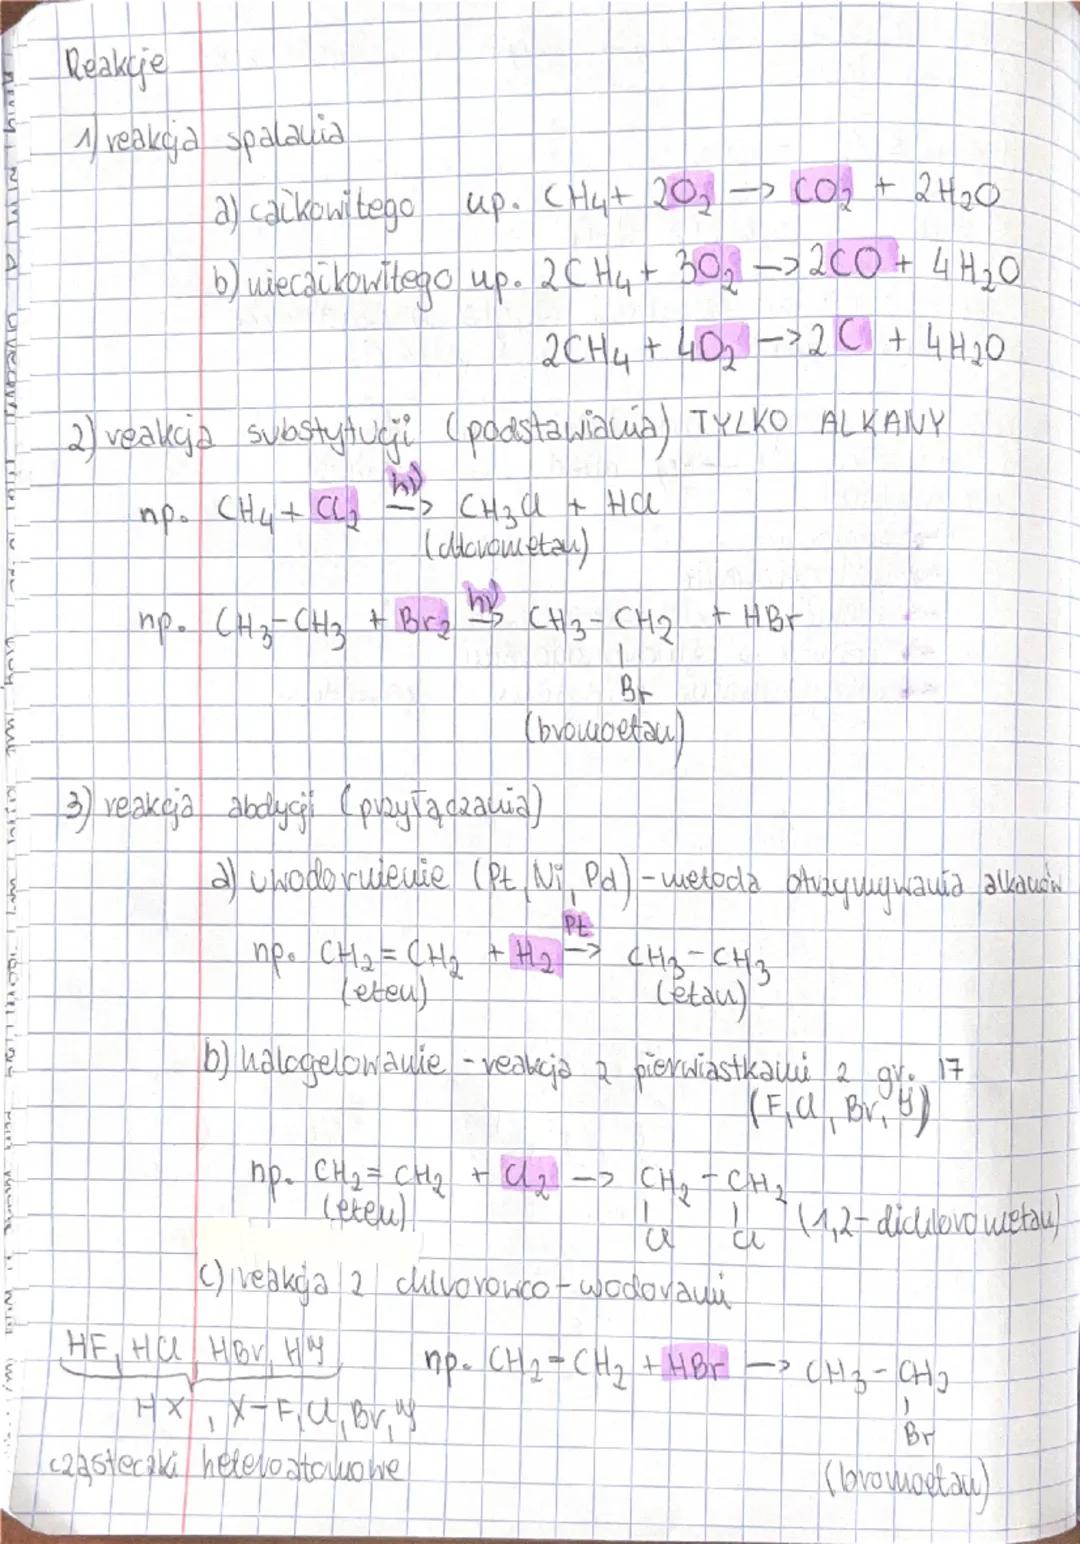 Reakcje
1) reakcja spalania
a) całkowitego np. CH₄ + 2O₂ -> CO₂ + 2H₂O
b) niecałkowitego np. 2CH₄ + 3O₂ -> 2CO + 4H₂O
2CH₄ + 4O₂ -> 2C + 4H₂O
2) reakcja substytucji (podstawiania) TYLKO ALKANY
np. CH₄ + Cl₂ hν -> CH₃Cl + HCl
(chlorometan)
np. CH₃-CH₃ + Br₂ hν -> CH₃-CH₂ + HBr
Br
(bromoetan)
3) reakcja abdycji (przyłączania)
a) uwodornienie (Pt, Ni, Pd) - metoda otrzymywania alkanów
np. CH₂=CH₂ + H₂ Pt -> CH₃-CH₃
(eten) (etan)
b) halogelowanie - reakcja z pierwiastkami z gr. 17
(F, Cl, Br, J)
np. CH₂=CH₂ + Cl₂ -> CH₂-CH₂
(eten) Cl Cl (1,2-dichlorometan)
c) reakcja z chlvorowco-wodorami
HF, HCl, HBr, HJ np. CH₂=CH₂ + HBr -> CH₃-CH₂
HX, X-F, Cl, Br, J Br
cząsteczki heteroatomowe (bromoetan)